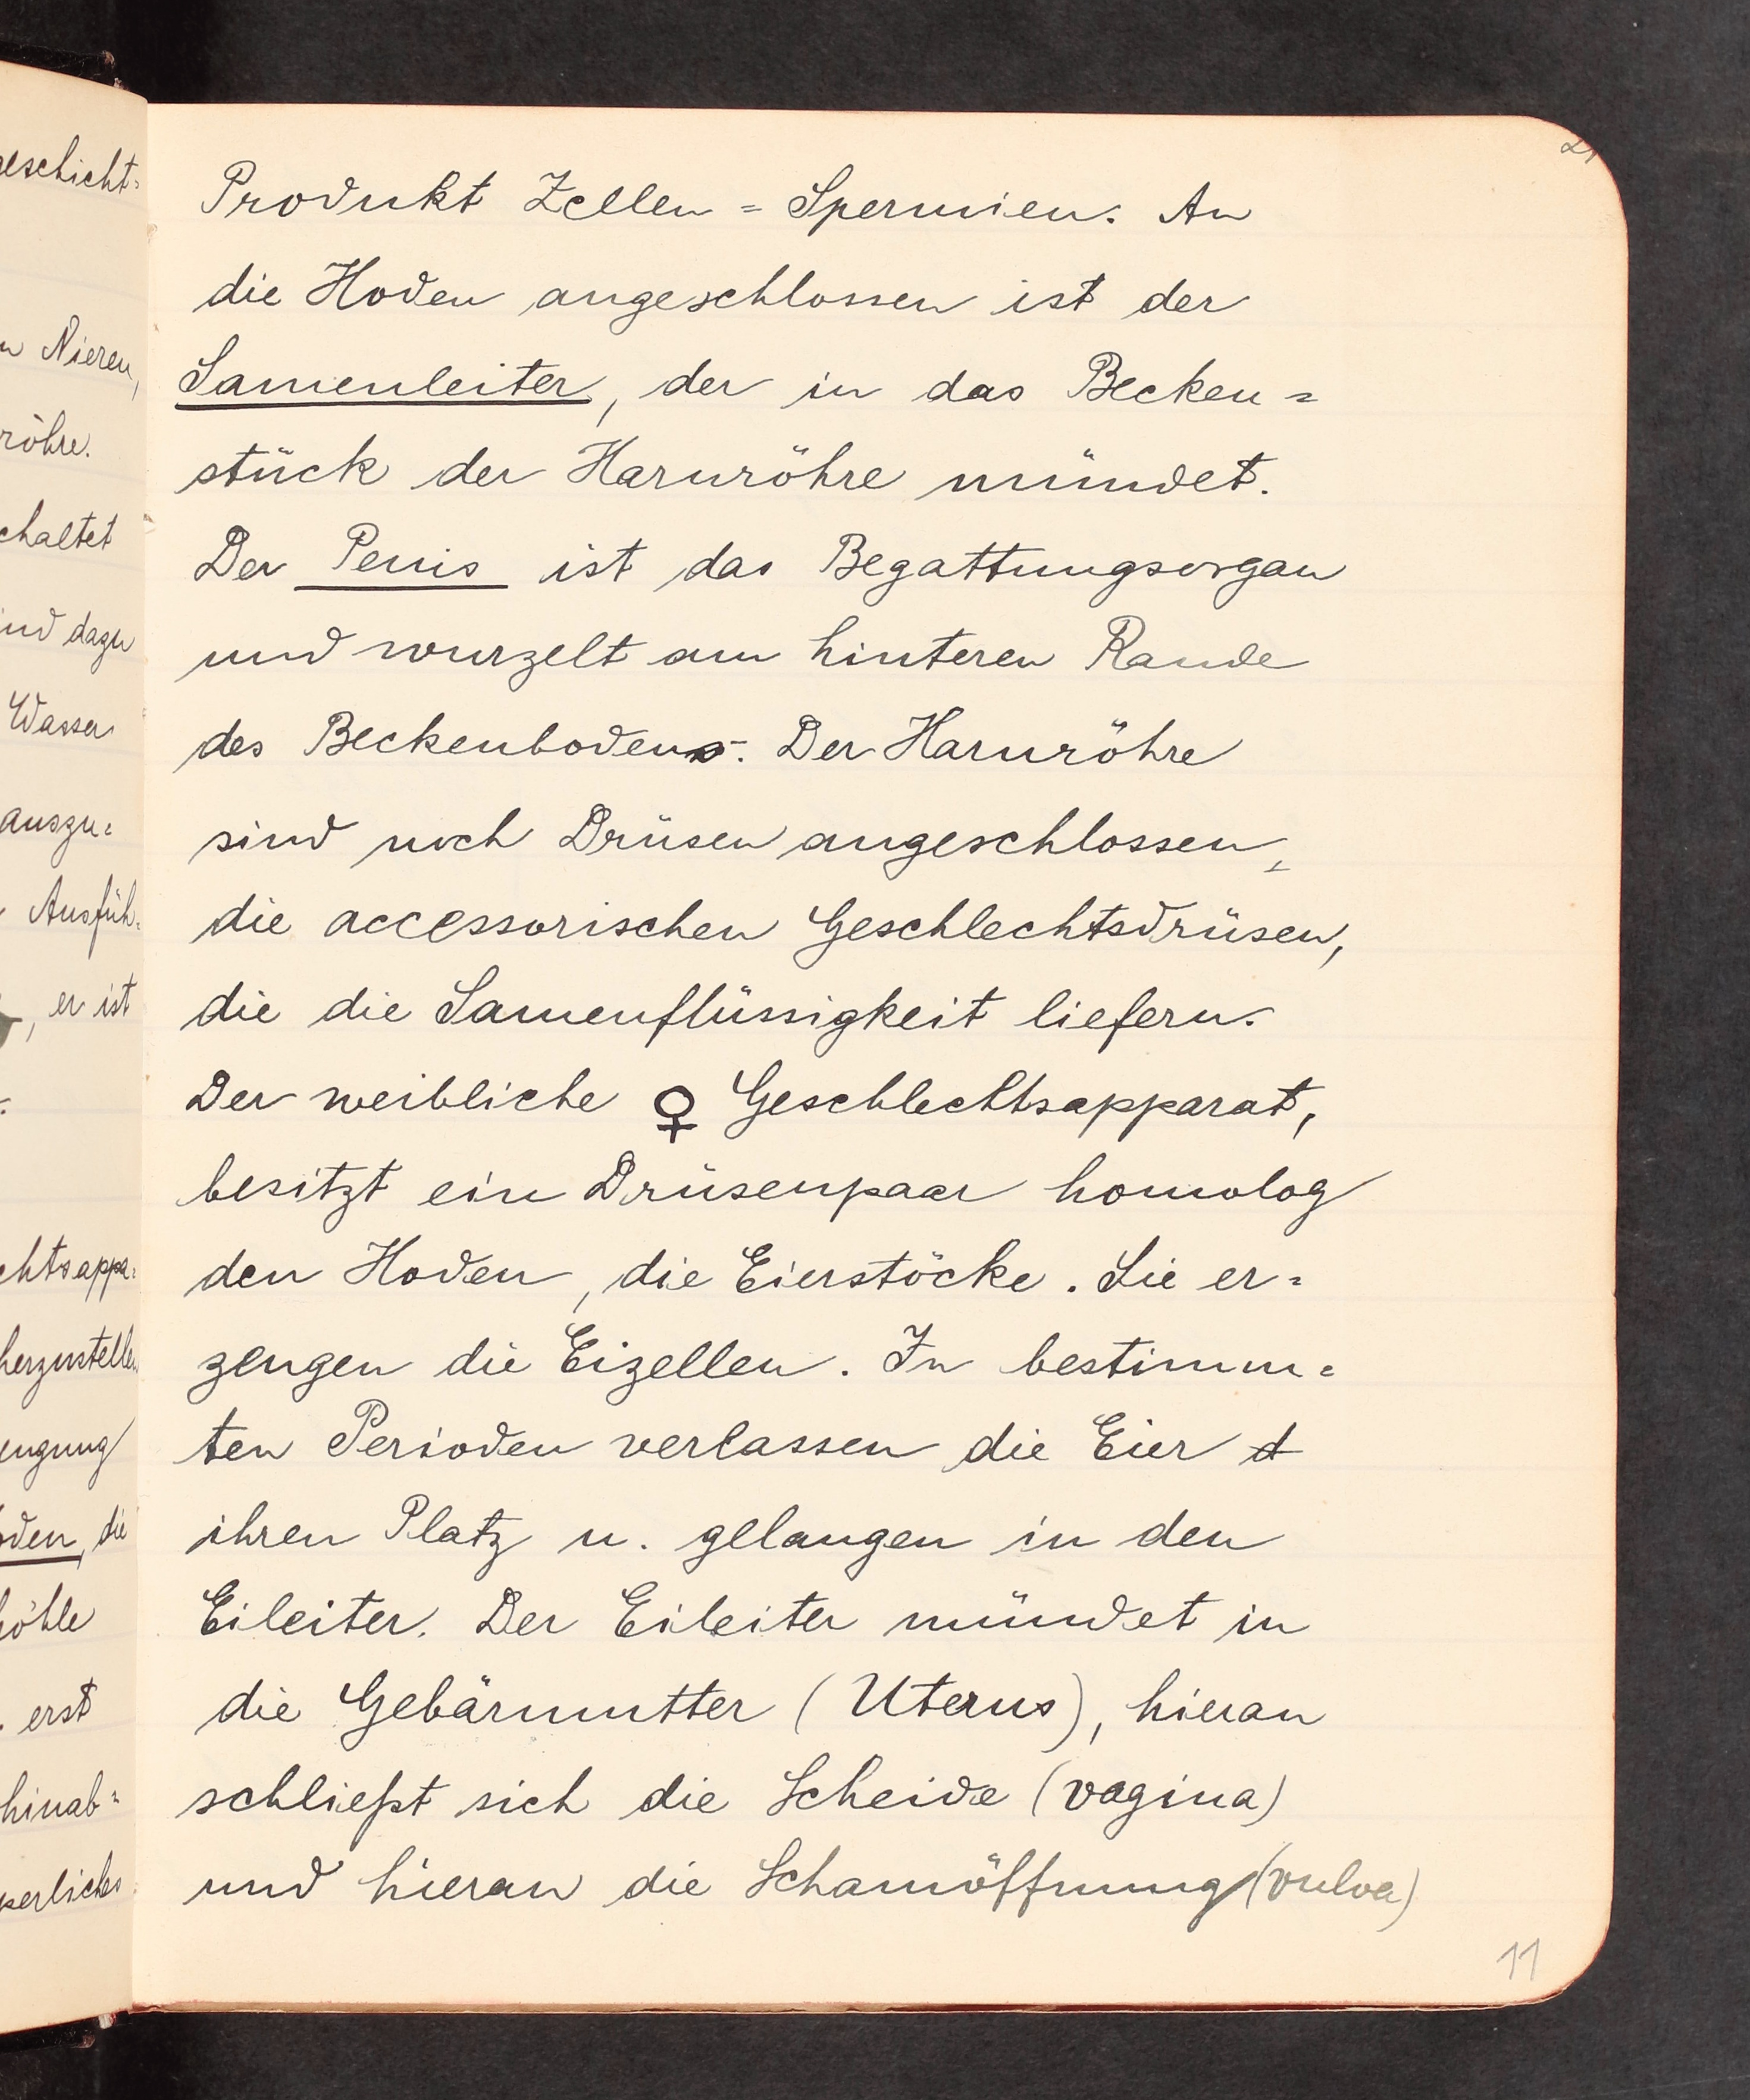 eschicht=
Nieren,
röhre.
chaltet
ind dazu
Wasser
auszu=
Ausfüh=
, er ist
chtsappa=
herzustellen
eugung
oden, die
höhle
. erst
hinab=
perliches
21
Produkt Zellen = Spermien. An
die Hoden angeschlossen ist der
Samenleiter, der in das Becken=
stück der Harnröhre mündet.
Der Penis ist das Begattungsorgan
und wurzelt am hinteren Rande
des Beckenbodens. Der Harnröhre
sind noch Drüsen angeschlossen,
die accessorischen Geschlechtsdrüsen,
die die Samenflüssigkeit liefern.
Der weibliche ♀ Geschlechtsapparat,
besitzt ein Drüsenpaar homolog
den Hoden, die Eierstöcke. Sie er=
zeugen die Eizellen. In bestimm=
ten Perioden verlassen die Eier d
ihren Platz u. gelangen in den
Eileiter. Der Eileiter mündet in
die Gebärmutter (Uterus), hieran
schließt sich die Scheide (vagina)
und hieran die Schamöffnung (vulva)
11